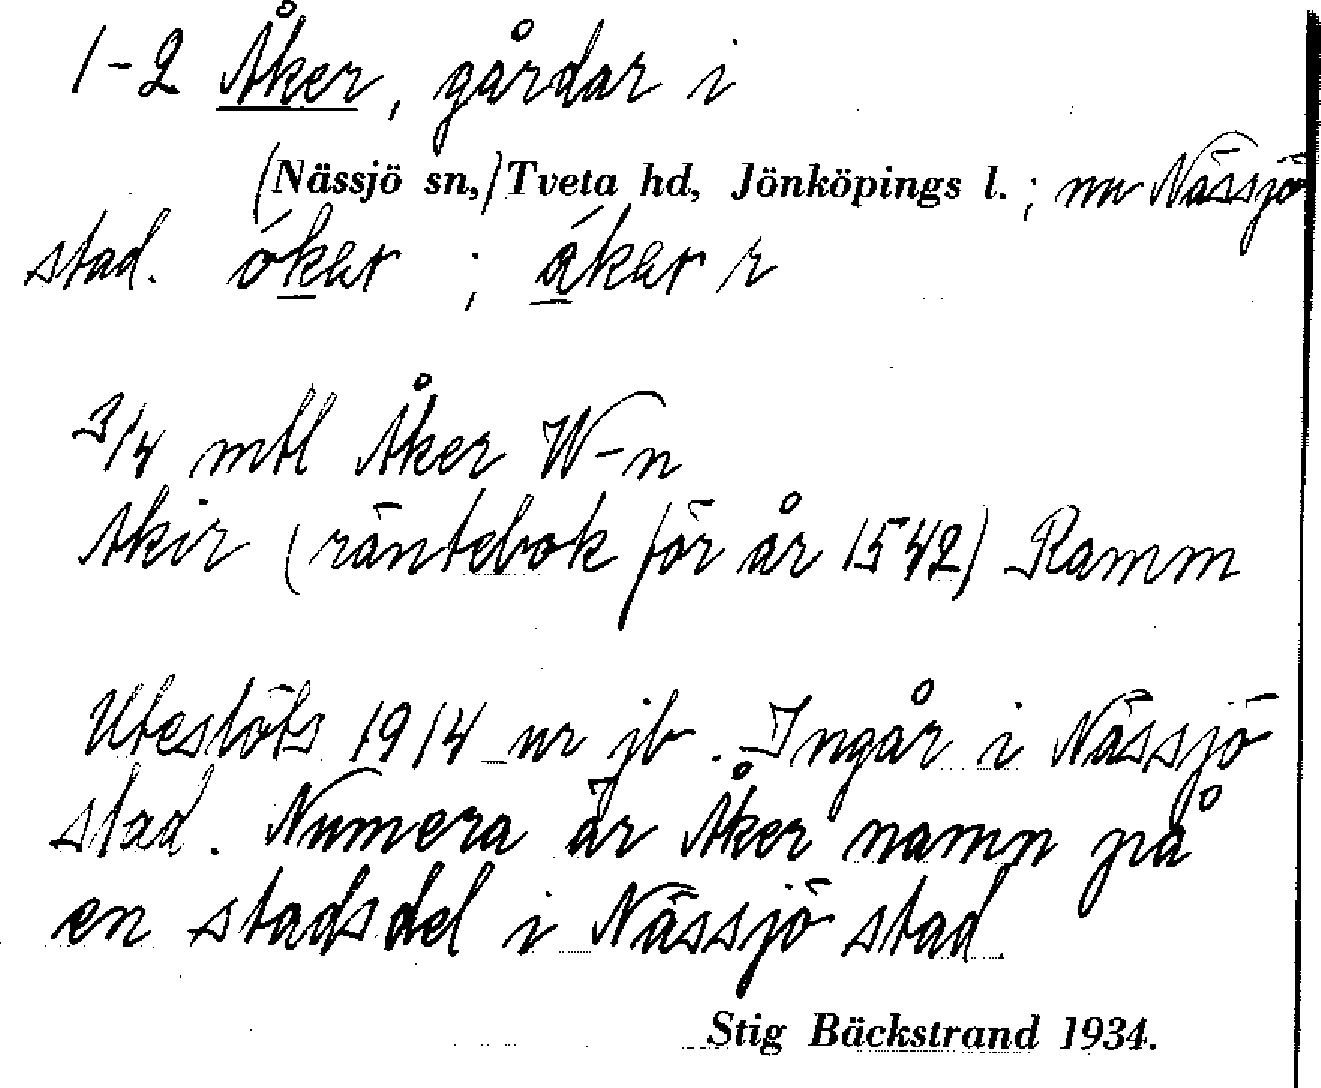 1-2 Åker, gårdar i
(Nässjö sn,) Tveta hd, Jönköpings l. ; nu Nässjö
stad. ókər ; ákər r
3/4 mtl Åker W-n
Akir (räntebok för år 1542) Ramm
Uteslöts 1914 ur jb. Ingår i Nässjö
stad. Numera är Åker namn på
en stadsdel i Nässjö stad
Stig Bäckstrand 1934.